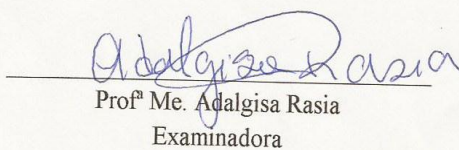 Adalgisa Rasia
Profª Me. Adalgisa Rasia
Examinadora